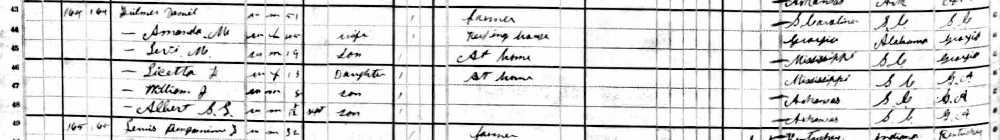 Arkansas Ark
43 164 164 Gilmer Daniel w m 51 / farmer S Carolina S C S C
44 — Amanda M w f wife Keeping house Georgia Alabama Georgia
45 — Levi M. w m 19 Son / At home Mississippi S C Georgia
46 — Licetta w f 13 Daughter / At home Mississippi S C G.A
47 — William J w m 8 son / Arkansas S C G.A
48 — Albert S. S. w m Sept son / Arkansas S C G.A
49 165 Lewis Benjamin J w m 32 / farmer Kentucky Indiana Kentucky